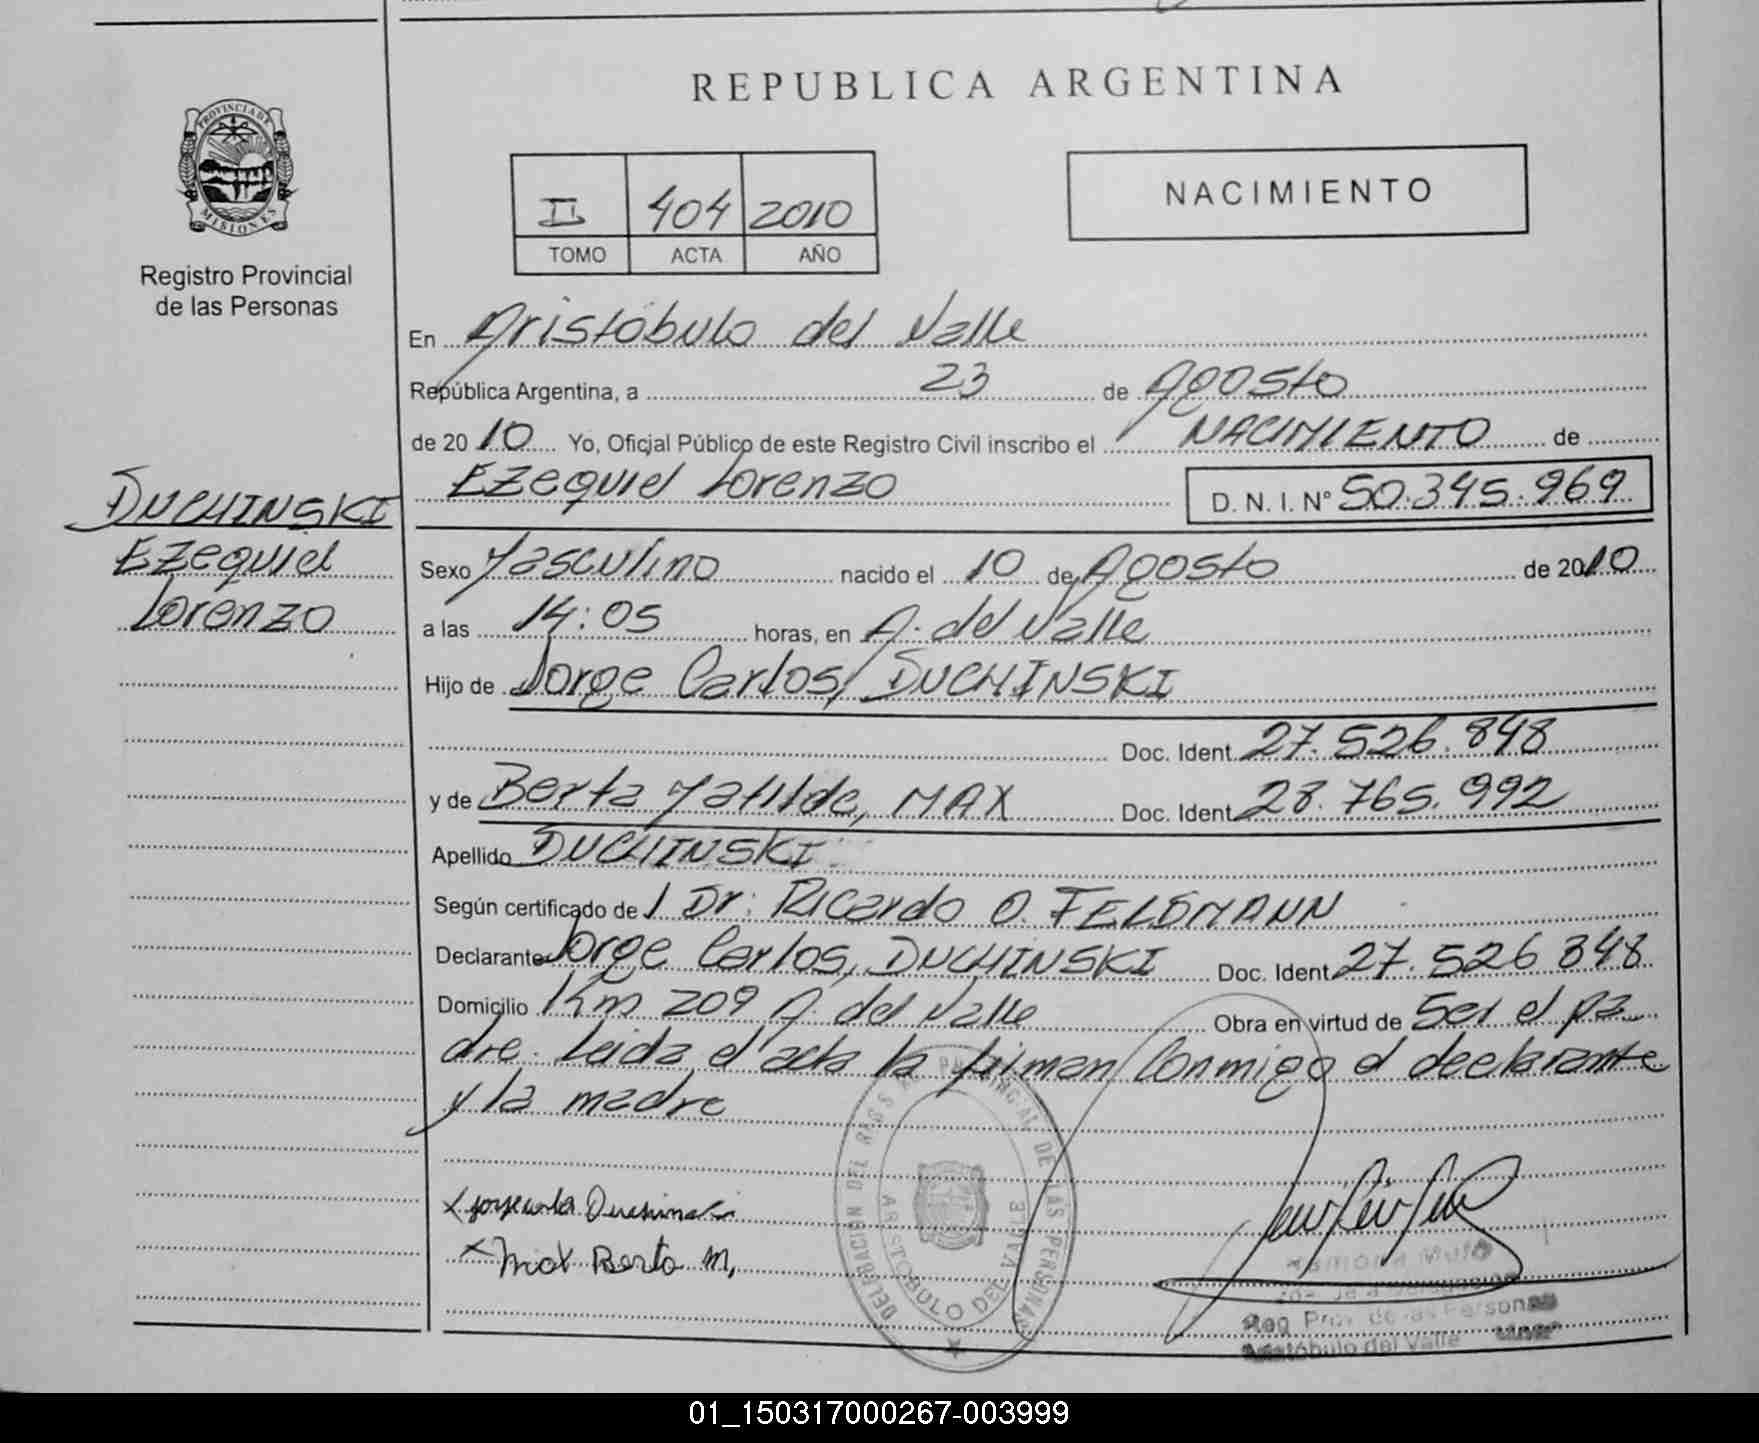 REPUBLICA ARGENTINA
PROVINCIA DE
MISIONES
Registro Provincial
de las Personas
II 404 2010
TOMO ACTA AÑO
NACIMIENTO
En Aristóbulo del Valle
República Argentina, a 23 de Agosto
de 20 10 Yo, Oficial Público de este Registro Civil inscribo el NACIMIENTO de
Ezequiel Lorenzo D. N. I. Nº 50.345.969
DUCHINSKI
Ezequiel
Lorenzo
Sexo Masculino nacido el 10 de Agosto de 2010
a las 14:05 horas, en A. del Valle
Hijo de Jorge Carlos, DUCHINSKI
Doc. Ident. 27.526.848
y de Berta Matilde, MAX Doc. Ident. 28.765.992
Apellido DUCHINSKI
Según certificado de l Dr: Ricardo O. FELDMANN
Declarante Jorge Carlos, DUCHINSKI Doc. Ident. 27.526 848
Domicilio Km 209 A. del Valle Obra en virtud de Ser el pa
dre. Leida el acta la firman Conmigo el declarante
y la madre
x Jorge Duchinski
x Max Berta M.
ARISTOBULO DEL VALLE
Reg Prov. de las Personas
Aristóbulo del Valle
01_150317000267-003999